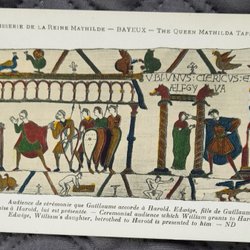 ISSERIE DE LA REINE MATHILDE — BAYEUX — THE QUEEN MATHILDA TAP
VBI VNVS CLERICVS E
ÆLFGYVA
Audience de cérémonie que Guillaume accorde à Harold. Edwige, fille de Guillaum
mise à Harold, lui est présentée — Ceremonial audience which William grants to Har
Edwige, William's daughter, betrothed to Harold is presented to him — ND